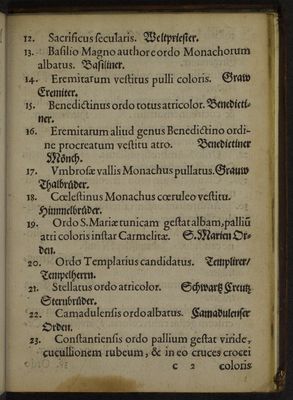 12. Sacrificus secularis. Weltpriester.
13. Basilio Magno authore ordo Monachorum
albatus. Basiliner.
14. Eremitarum vestitus pulli coloris. Graw
Eremiter.
15. Benedictinus ordo totus atricolor. Benedicti-
ner.
16. Eremitarum aliud genus Benedictino ordi-
ne procreatum vestitu atro. Benedictiner
Mönch.
17. Vmbrosæ vallis Monachus pullatus. Grauw
Thalbrüder.
18. Cœlestinus Monachus cœruleo vestitu.
Himmelbrüder.
19. Ordo S. Mariæ tunicam gestat albam, palliū
atri coloris instar Carmelitæ. S. Marien Or-
den.
20. Ordo Templarius candidatus. Templirer/
Tempelherrn.
21. Stellatus ordo atricolor. Schwartz Creutz
Sternbrüder.
22. Camadulensis ordo albatus. Camadulenser
Orden.
23. Constantiensis ordo pallium gestat viride,
cucullionem rubeum, & in eo cruces crocei
c 2 coloris